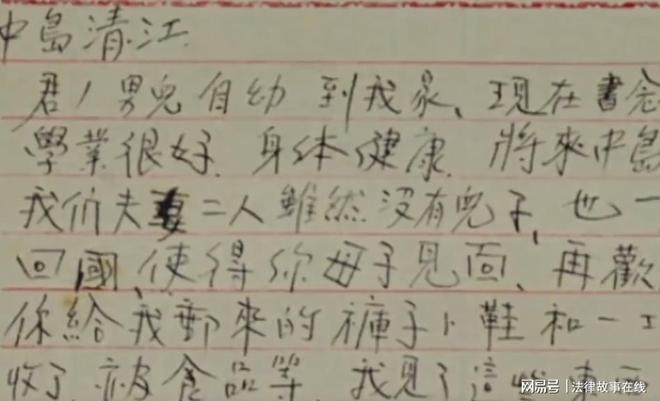 中島清江
君！男兒自幼到我家、現在書念
學業很好.身体健康.將來中島
我们夫妻二人雖然沒有兒子、也一
回國、使得你母子見面、再歡
你給我郵來的褲子卜鞋和一工
收了.被食品等.我見了這些東西
网易号 | 法律故事在线